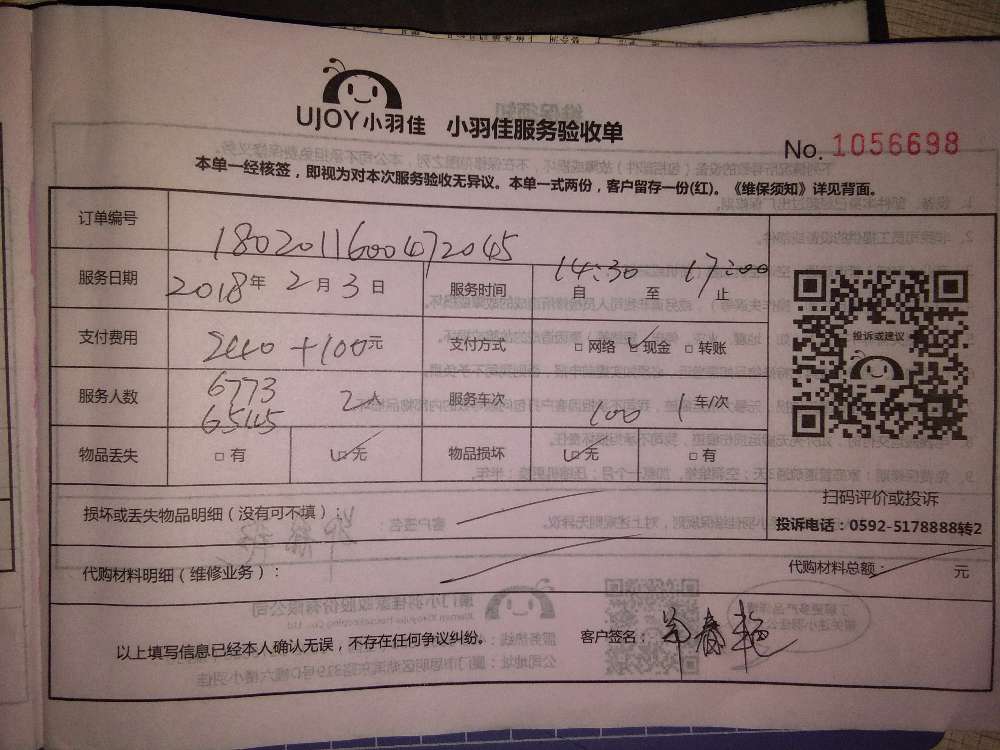 UJOY小羽佳 小羽佳服务验收单
No. 1056698
本单一经核签，即视为对本次服务验收无异议。本单一式两份，客户留存一份(红)。《维保须知》详见背面。
订单编号 180201160047 2045
服务日期 2018年 2月 3日 服务时间 14:30 17:00
自 至 止
支付费用 2440+100元 支付方式 □网络 ☑现金 □转账
投诉或建议
服务人数 6773 6545 2人 服务车次 100 1车/次
物品丢失 □有 ☑无 物品损坏 ☑无 □有
扫码评价或投诉
损坏或丢失物品明细（没有可不填）：
投诉电话：0592-5178888转2
代购材料明细（维修业务）： 代购材料总额： 元
以上填写信息已经本人确认无误，不存在任何争议纠纷。 客户签名： 春艳